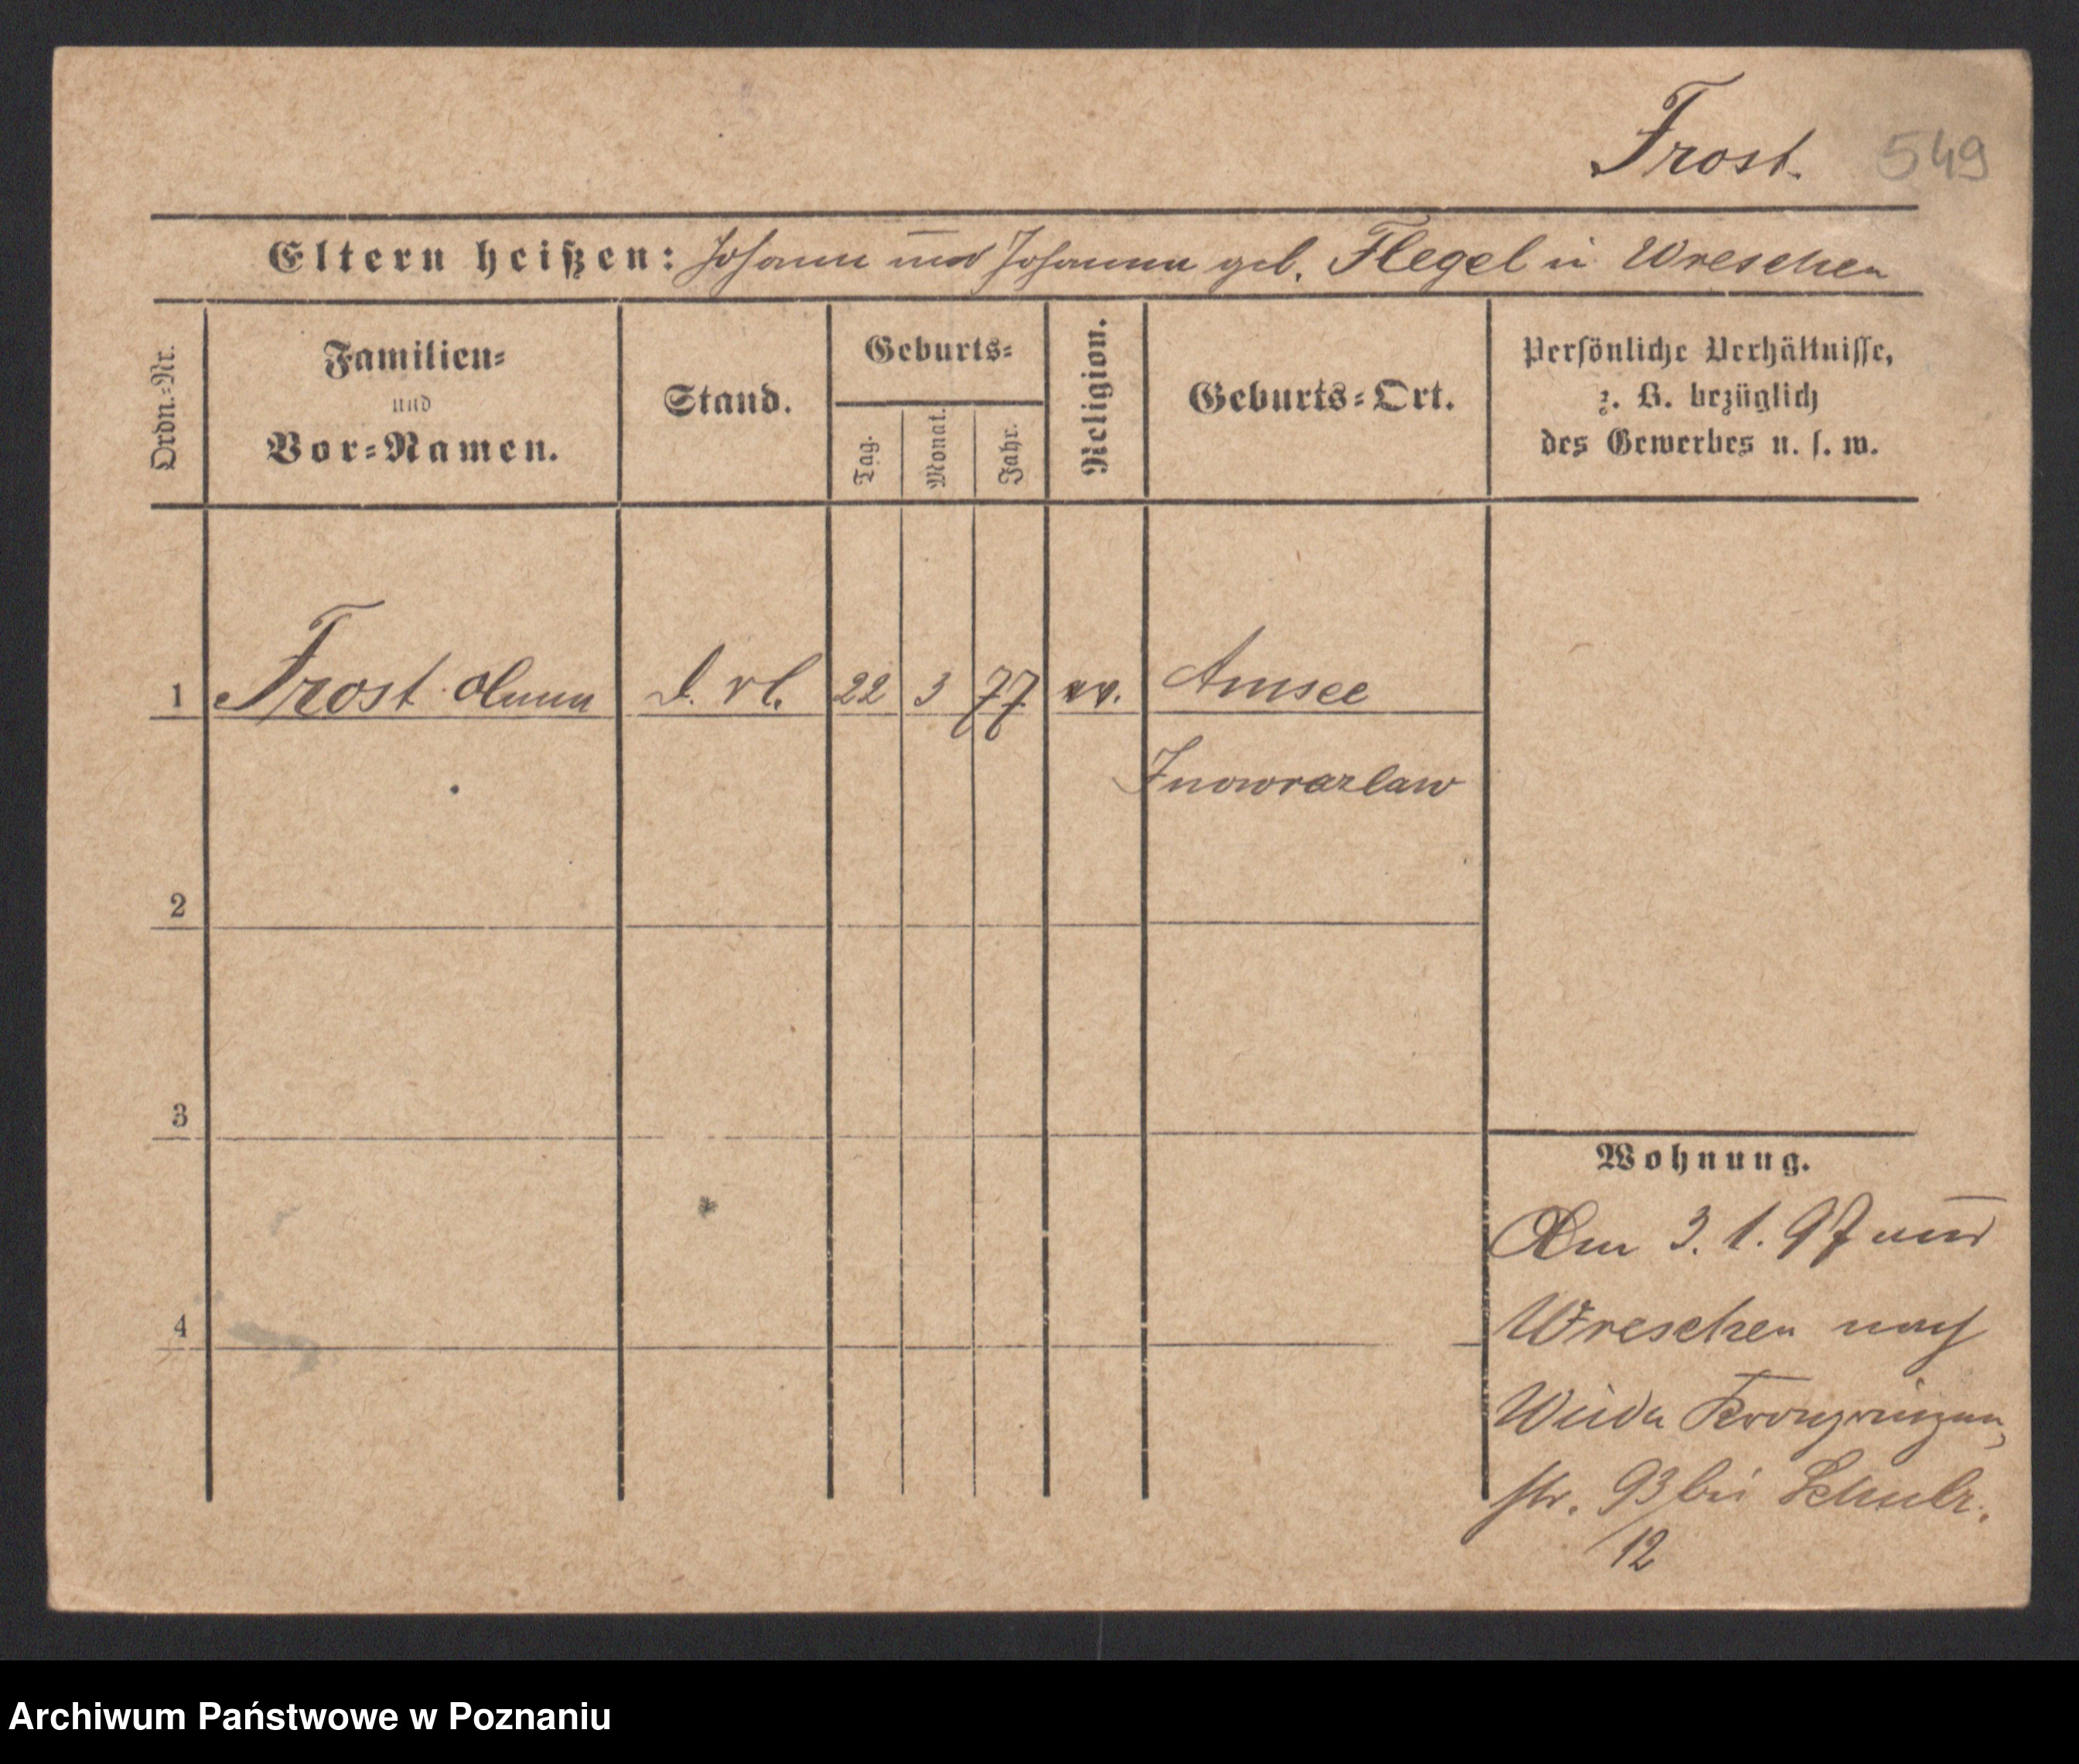 Frost. 549
Eltern heißen: Johann und Johanna geb. Flegel in Wreschen
Ordn.=Nr.
Familien=
und
Vor=Namen.
Stand.
Geburts=
Tag.
Monat.
Jahr.
Religion.
Geburts=Ort.
Persönliche Verhältnisse,
z. B. bezüglich
des Gewerbes u. s. w.
1 Frost Anna 22 3 77 ev. Amsee
Inowrazlaw
2
3
Wohnung.
Am 3. 1. 97 von
4 Wreschen nach
Wilda Kronprinzen
str. 93 bei Schulz.
12
Archiwum Państwowe w Poznaniu